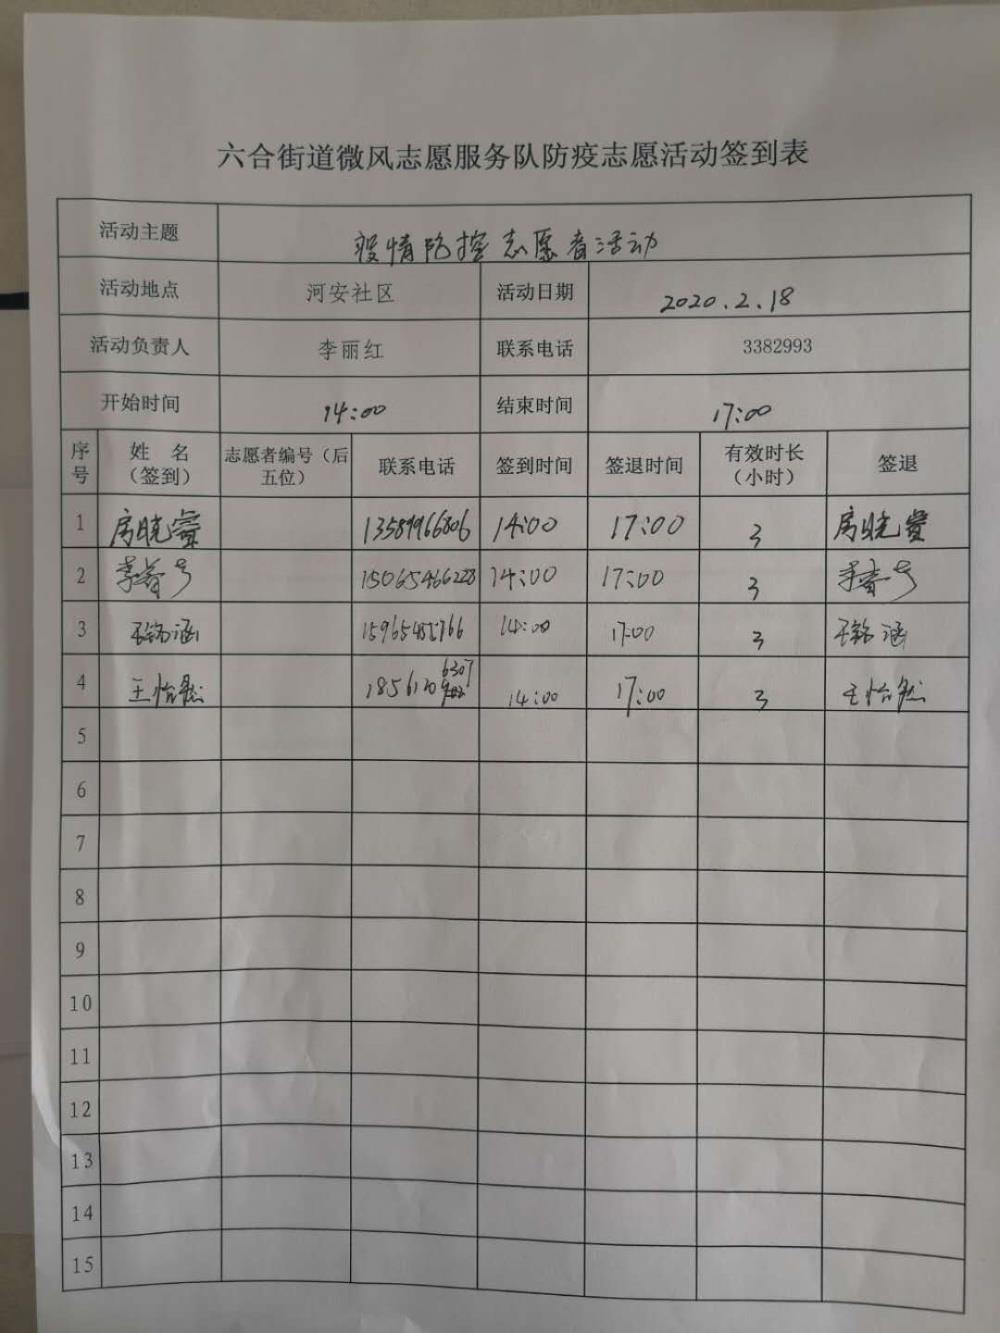 六合街道微风志愿服务队防疫志愿活动签到表
活动主题 疫情防控志愿者活动
活动地点 河安社区 活动日期 2020.2.18
活动负责人 李丽红 联系电话 3382993
开始时间 14:00 结束时间 17:00
序号 姓 名（签到） 志愿者编号（后五位） 联系电话 签到时间 签退时间 有效时长（小时） 签退
1 房晓 13589966806 14:00 17:00 3 房晓
2 李 15065466228 14:00 17:00 3 李
3 王铭涵 14:00 17:00 3 王铭涵
4 王怡然 1856120 6307 14:00 17:00 3 王怡然
5
6
7
8
9
10
11
12
13
14
15